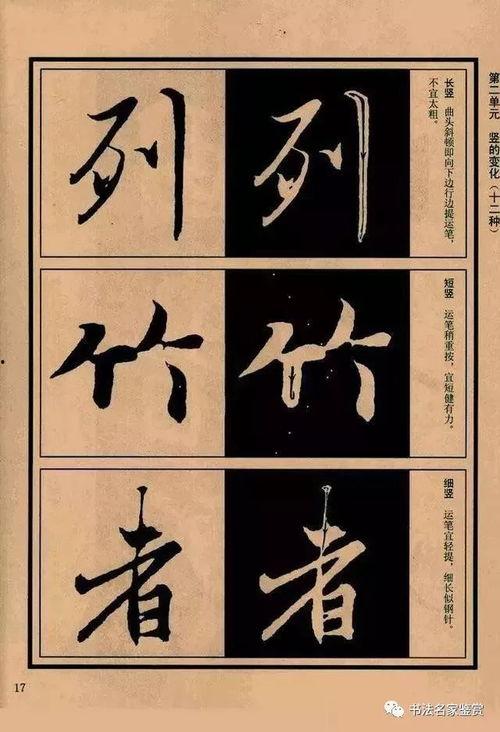 第二单元 竖的变化（十二种）
列
列
长竖 曲头斜顿即向下边行边提运笔，
不宜太粗。
竹
竹
短竖 运笔稍重按，宜短健有力。
者
者
细竖 运笔宜轻提，细长似钢针。
17
书法名家鉴赏